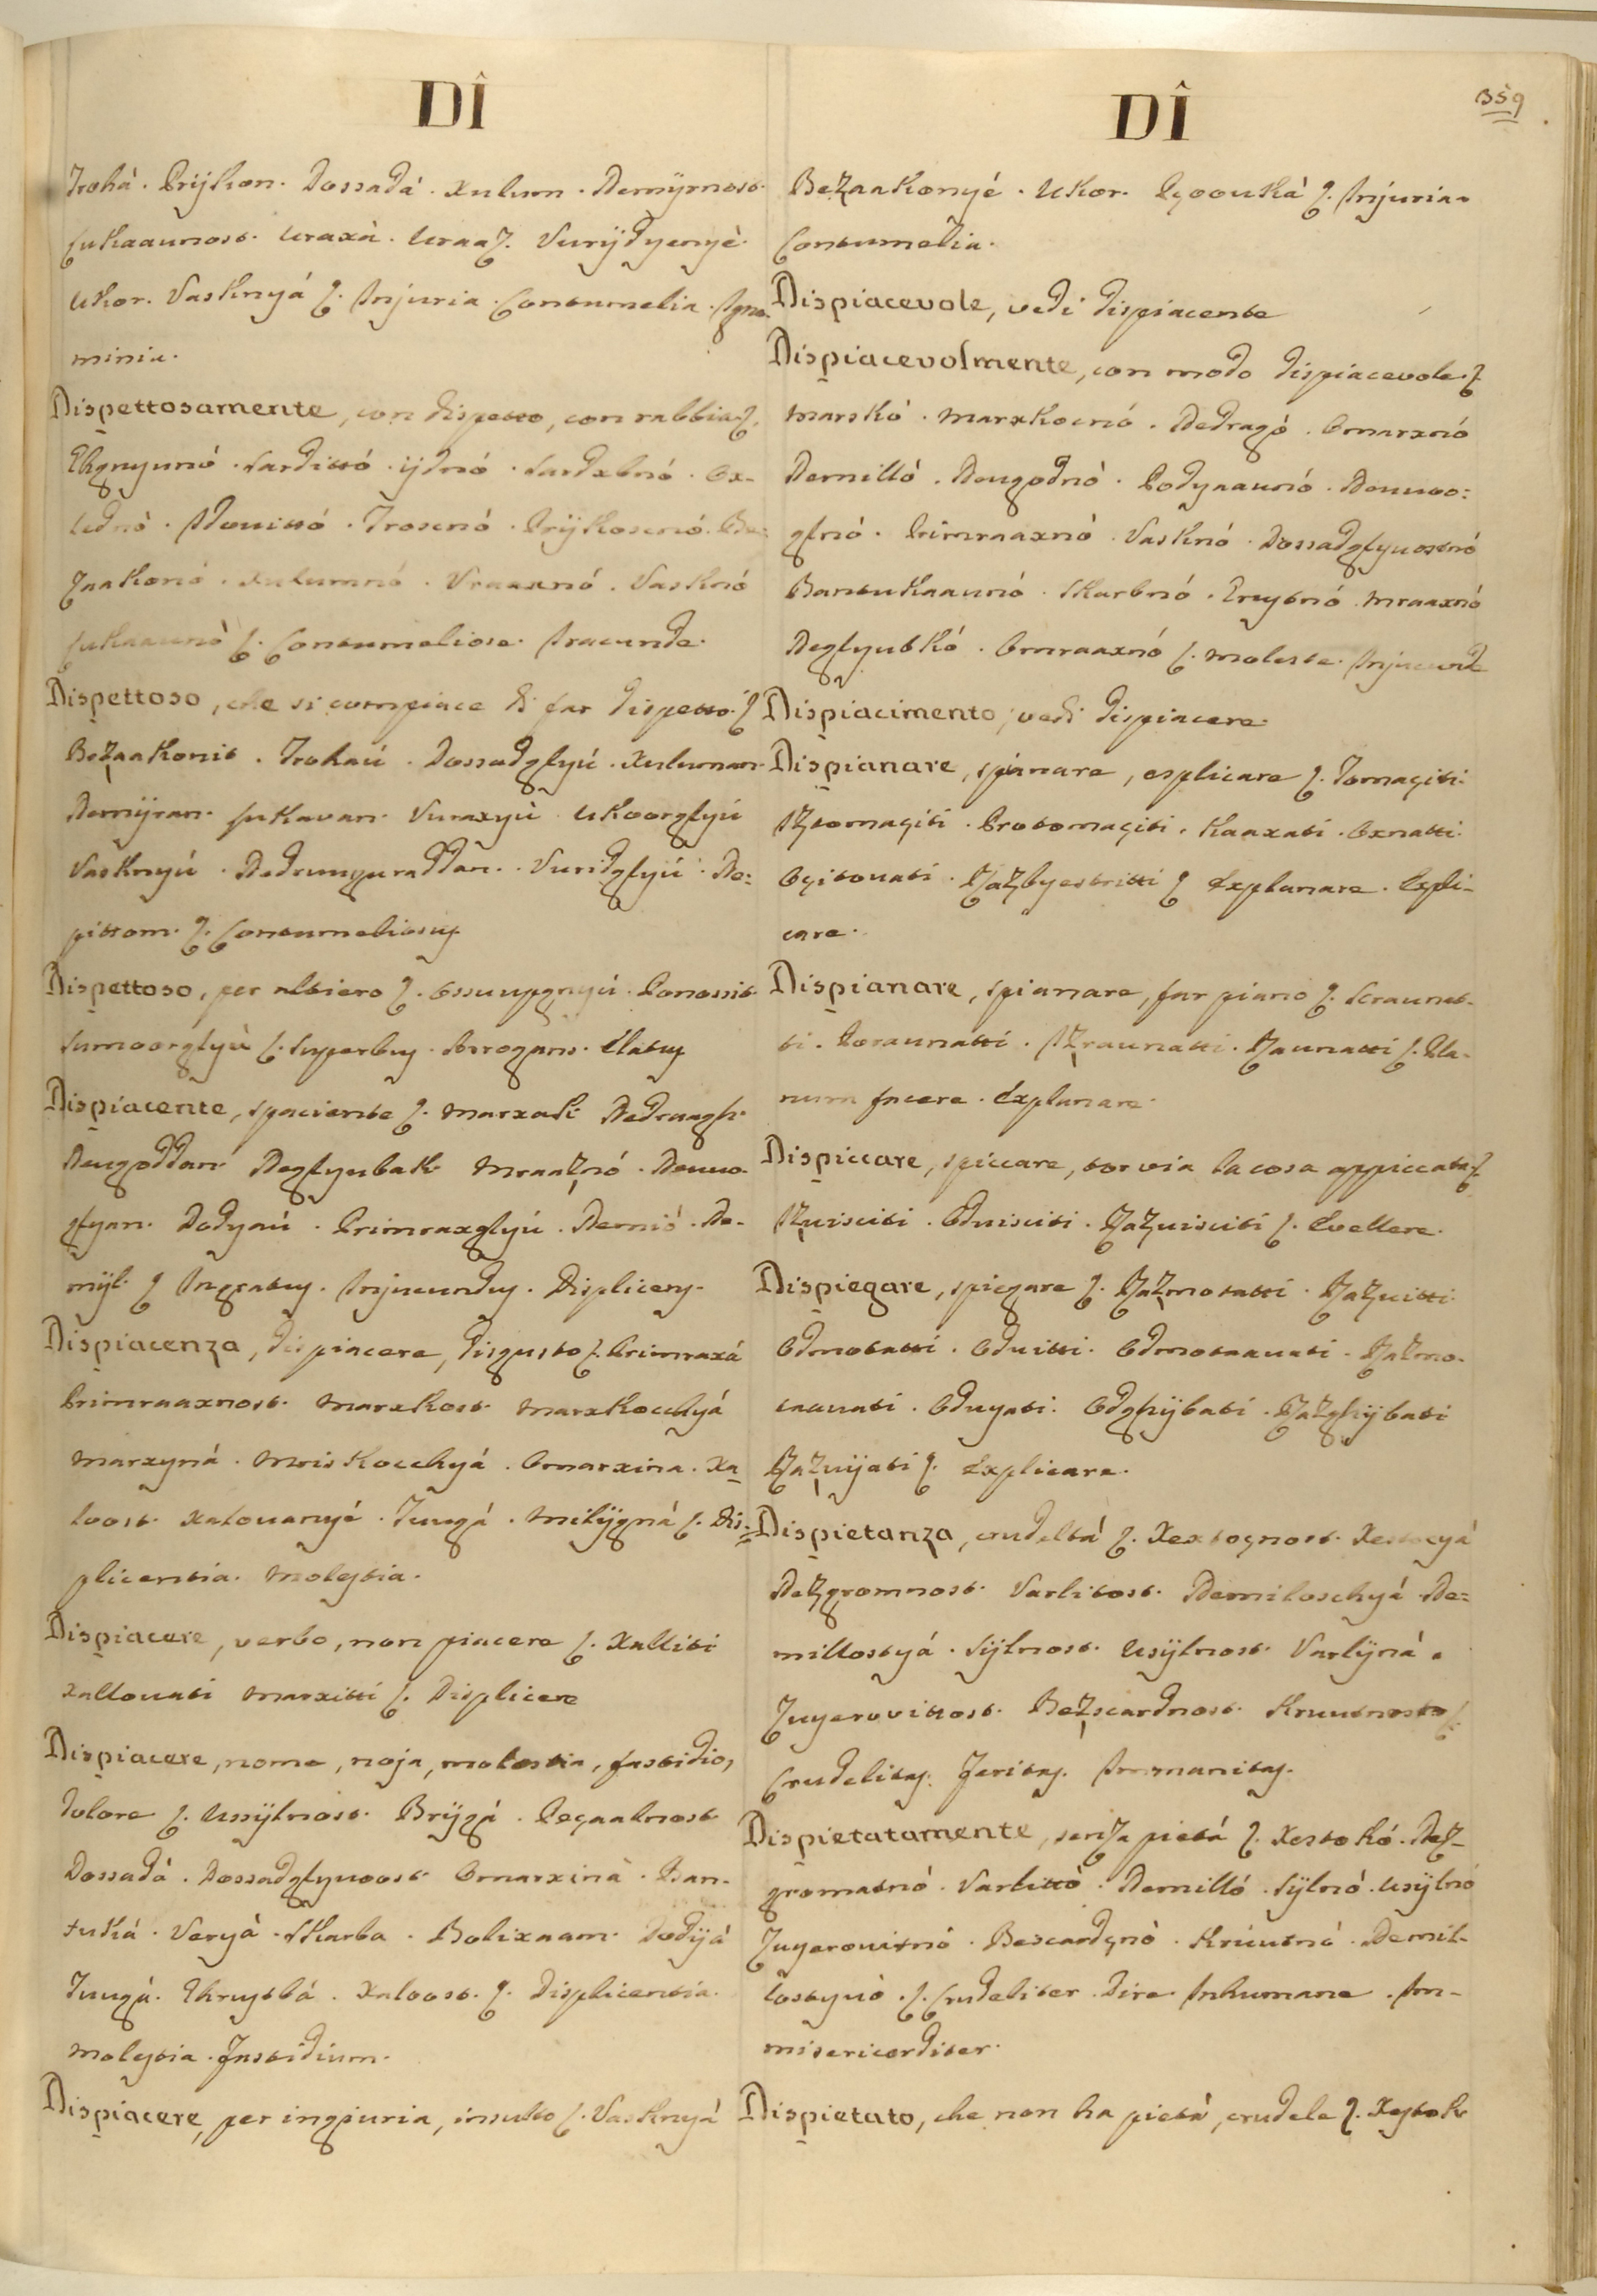 DÎ
Trohá. Prijkon. Dossadá. Xulum. Nemÿrnost.
sukaaunost. Uraxà. Uraaz. Vurijdyenyè.
Ukor. Vasknyá ſ. Injuria. Contumelia. Igno-
minia.
Dispettosamente, con dispetto, con rabbia ſ.
Sardittó. ijdnó. Sardxbnó. Ox-
Trosenó. Prijkosenó. Be=
zaakonó. Xulumnó. Vraaxnó. Vasknó
sukaaunò ſ. Contumeliose. Iracunde.
Dispettoso, che si compiace di far dispetto. ſ
Bezaakonit. Trohaú. Dossadglyú. Xuluman.
Nemÿran. sukavan. Vuraxyú. Ukoorglyú
Vasknyú. Vuridglyú. Ne=
pittom. ſ. Contumeliosus
Dispettoso, per altiero ſ. Ponossit.
Sumoorglyù ſ. Superbus. Arrogans. Elatus
Dispiacente, spaciente ſ. Marxak. Nedraagh.
Neugoddan. Neglyubak. Mraaznó. Neuuo-
glyan. Dodyaú. Primraxglyú. Nemió. Ne-
mÿl. ſ Ingratus. Injucundus. Displicens.
Dispiacenza, dispiacere, disgusto ſ. Primraxá
Primraaxnost. Marxkost. Marxkocchyá
Marxyná. Mriskocchyá. Omarxina. Xa-
loost. Xalouanyé. Tuugá. Milÿgná ſ. Dis=
plicentia. Molestia.
Dispiacere, verbo, non piacere ſ. Xalliti
Xallouati Marxitti ſ. Displicere
Dispiacere, nome, noja, molestia, fastidio,
dolore ſ. Ussÿlnost. Brÿgá. Pegaalnost
Dossadà. Dossadglyuoost. Omarxinà. Ban-
tuká. Veryà. Skarba. Bolixaam. Dodÿá
Tuugá. Xaloost. ſ. Displicentia.
Molestia. Fastidium.
Dispiacere, per ingiuria, insulto ſ. Vasknyá
DÎ
359
Bezaakonyé. Ukor. Psoouká ſ. Injuria.
Contumelia.
Dispiacevole, vedi dispiacente
Dispiacevolmente, con modo dispiacevole. ſ
Marskó. Marxkocnó. Nedragó. Omarxnó
Nemilló. Neugodnò. Podyaaunó. Neuuoo=
glnó. Primraaxnó. Vasknó. Dossadglyuostnó
Bantukaaunó. Skarbnó. Mraaxnó
Neglyubkó. Omraaxnó ſ. Moleste. Injucunde
Dispiacimento, vedi dispiacere.
Dispianare, spianare, esplicare ſ. Tomagiti.
Iztomagiti. Protomagiti. Kaaxati. Oxnatti.
Ogitouati. Razbyestritti ſ Explanare. Expli-
care.
Dispianare, spianare, far piano ſ. Scraunat-
ti. Poraunatti. Izraunatti. Raunatti ſ. Pla-
num facere. Explanare.
Dispiccare, spiccare, tor via la cosa appiccata ſ.
Izuisciti. Oduisciti. Razuisciti ſ. Evellere.
Dispiegare, spiegare ſ. Razmotatti. Razuitti.
Odmotatti. Oduitti. Odmotaauati. Razmo-
taauati. Oduyati. Odghÿbati. Razghÿbati
Razuijati ſ. Explicare.
Dispietanza, crudeltá ſ. Xestognost. Xestocyá
Nezgromnost. Varlitost. Nemiloschyá. Ne=
millostyá. Sÿlnost. Usÿlnost. Varlÿná.
Zuyerovittost. Bezscardnost. Kruutnost ſ.
Crudelitas. Feritas. Immanitas.
Dispietatamente, senza pietá ſ. Xestokó. Nez-
gromatnó. Varlittò. Nemilló. Sÿlnó. Usÿlnó
Zuyerouitnó. Bescardgnò. Krúutnó. Nemil-
lostyuò. ſ. Crudeliter. Dire. Inhumane. Im-
misericorditer.
Dispietato, che non ha pietà, crudele ſ. Xestok